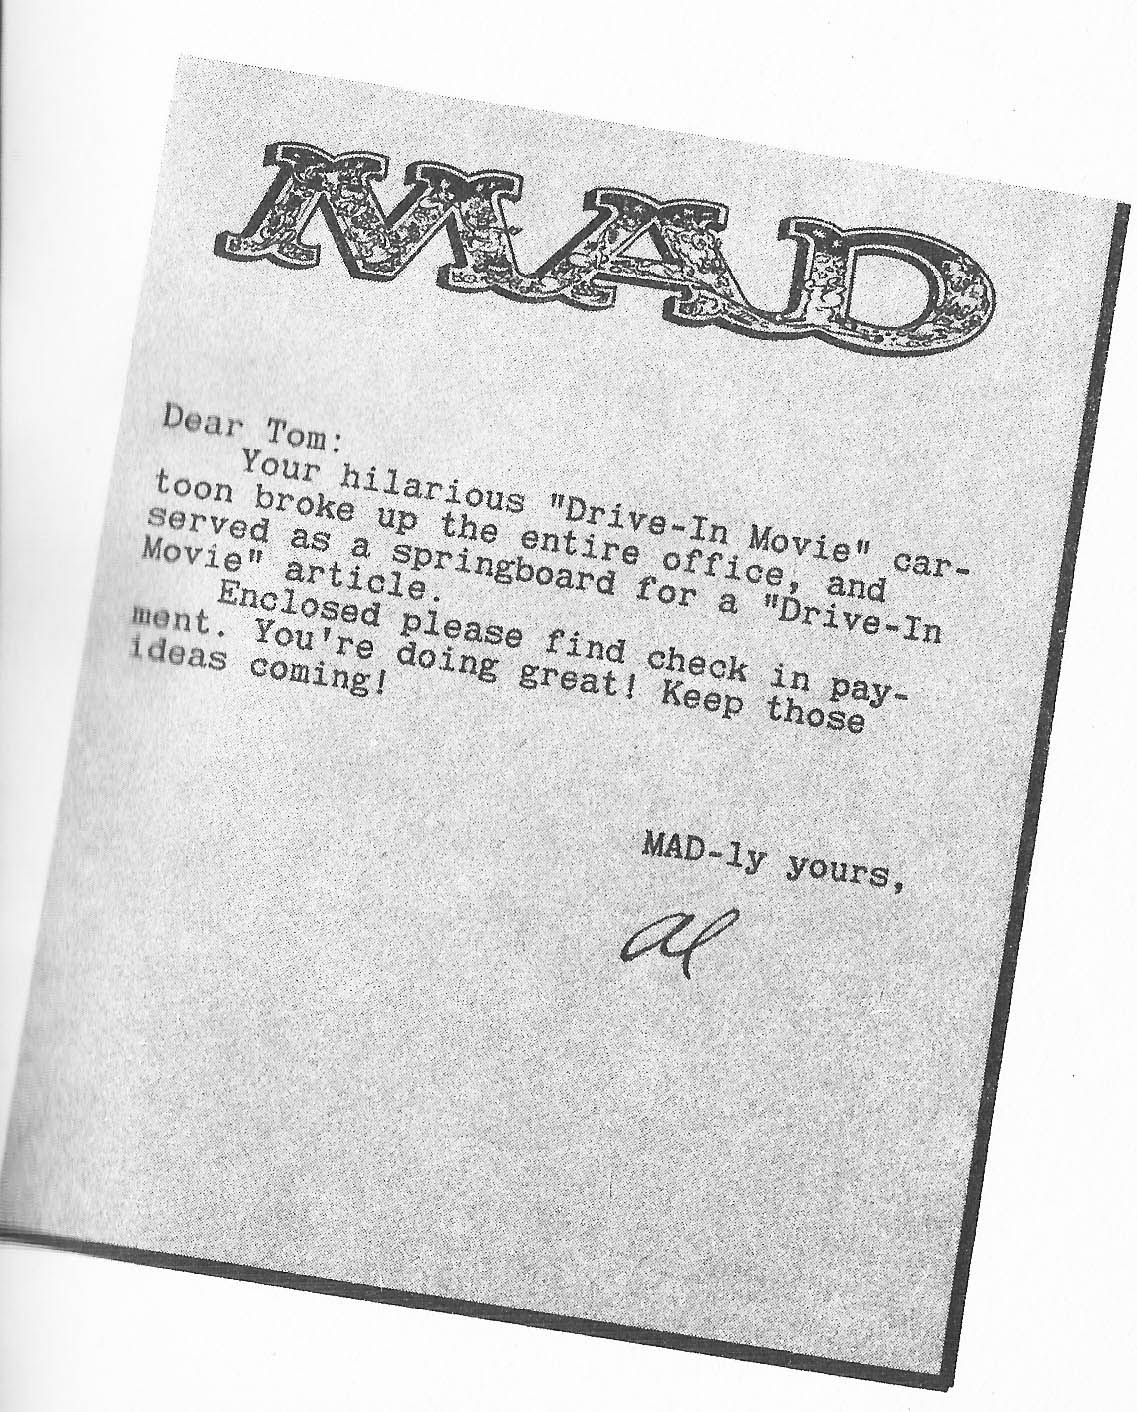 MAD
Dear Tom:
Your hilarious "Drive-In Movie" car-
toon broke up the entire office, and
served as a springboard for a "Drive-In
Movie" article.
Enclosed please find check in pay-
ment. You're doing great! Keep those
ideas coming!
MAD-ly yours,
Al